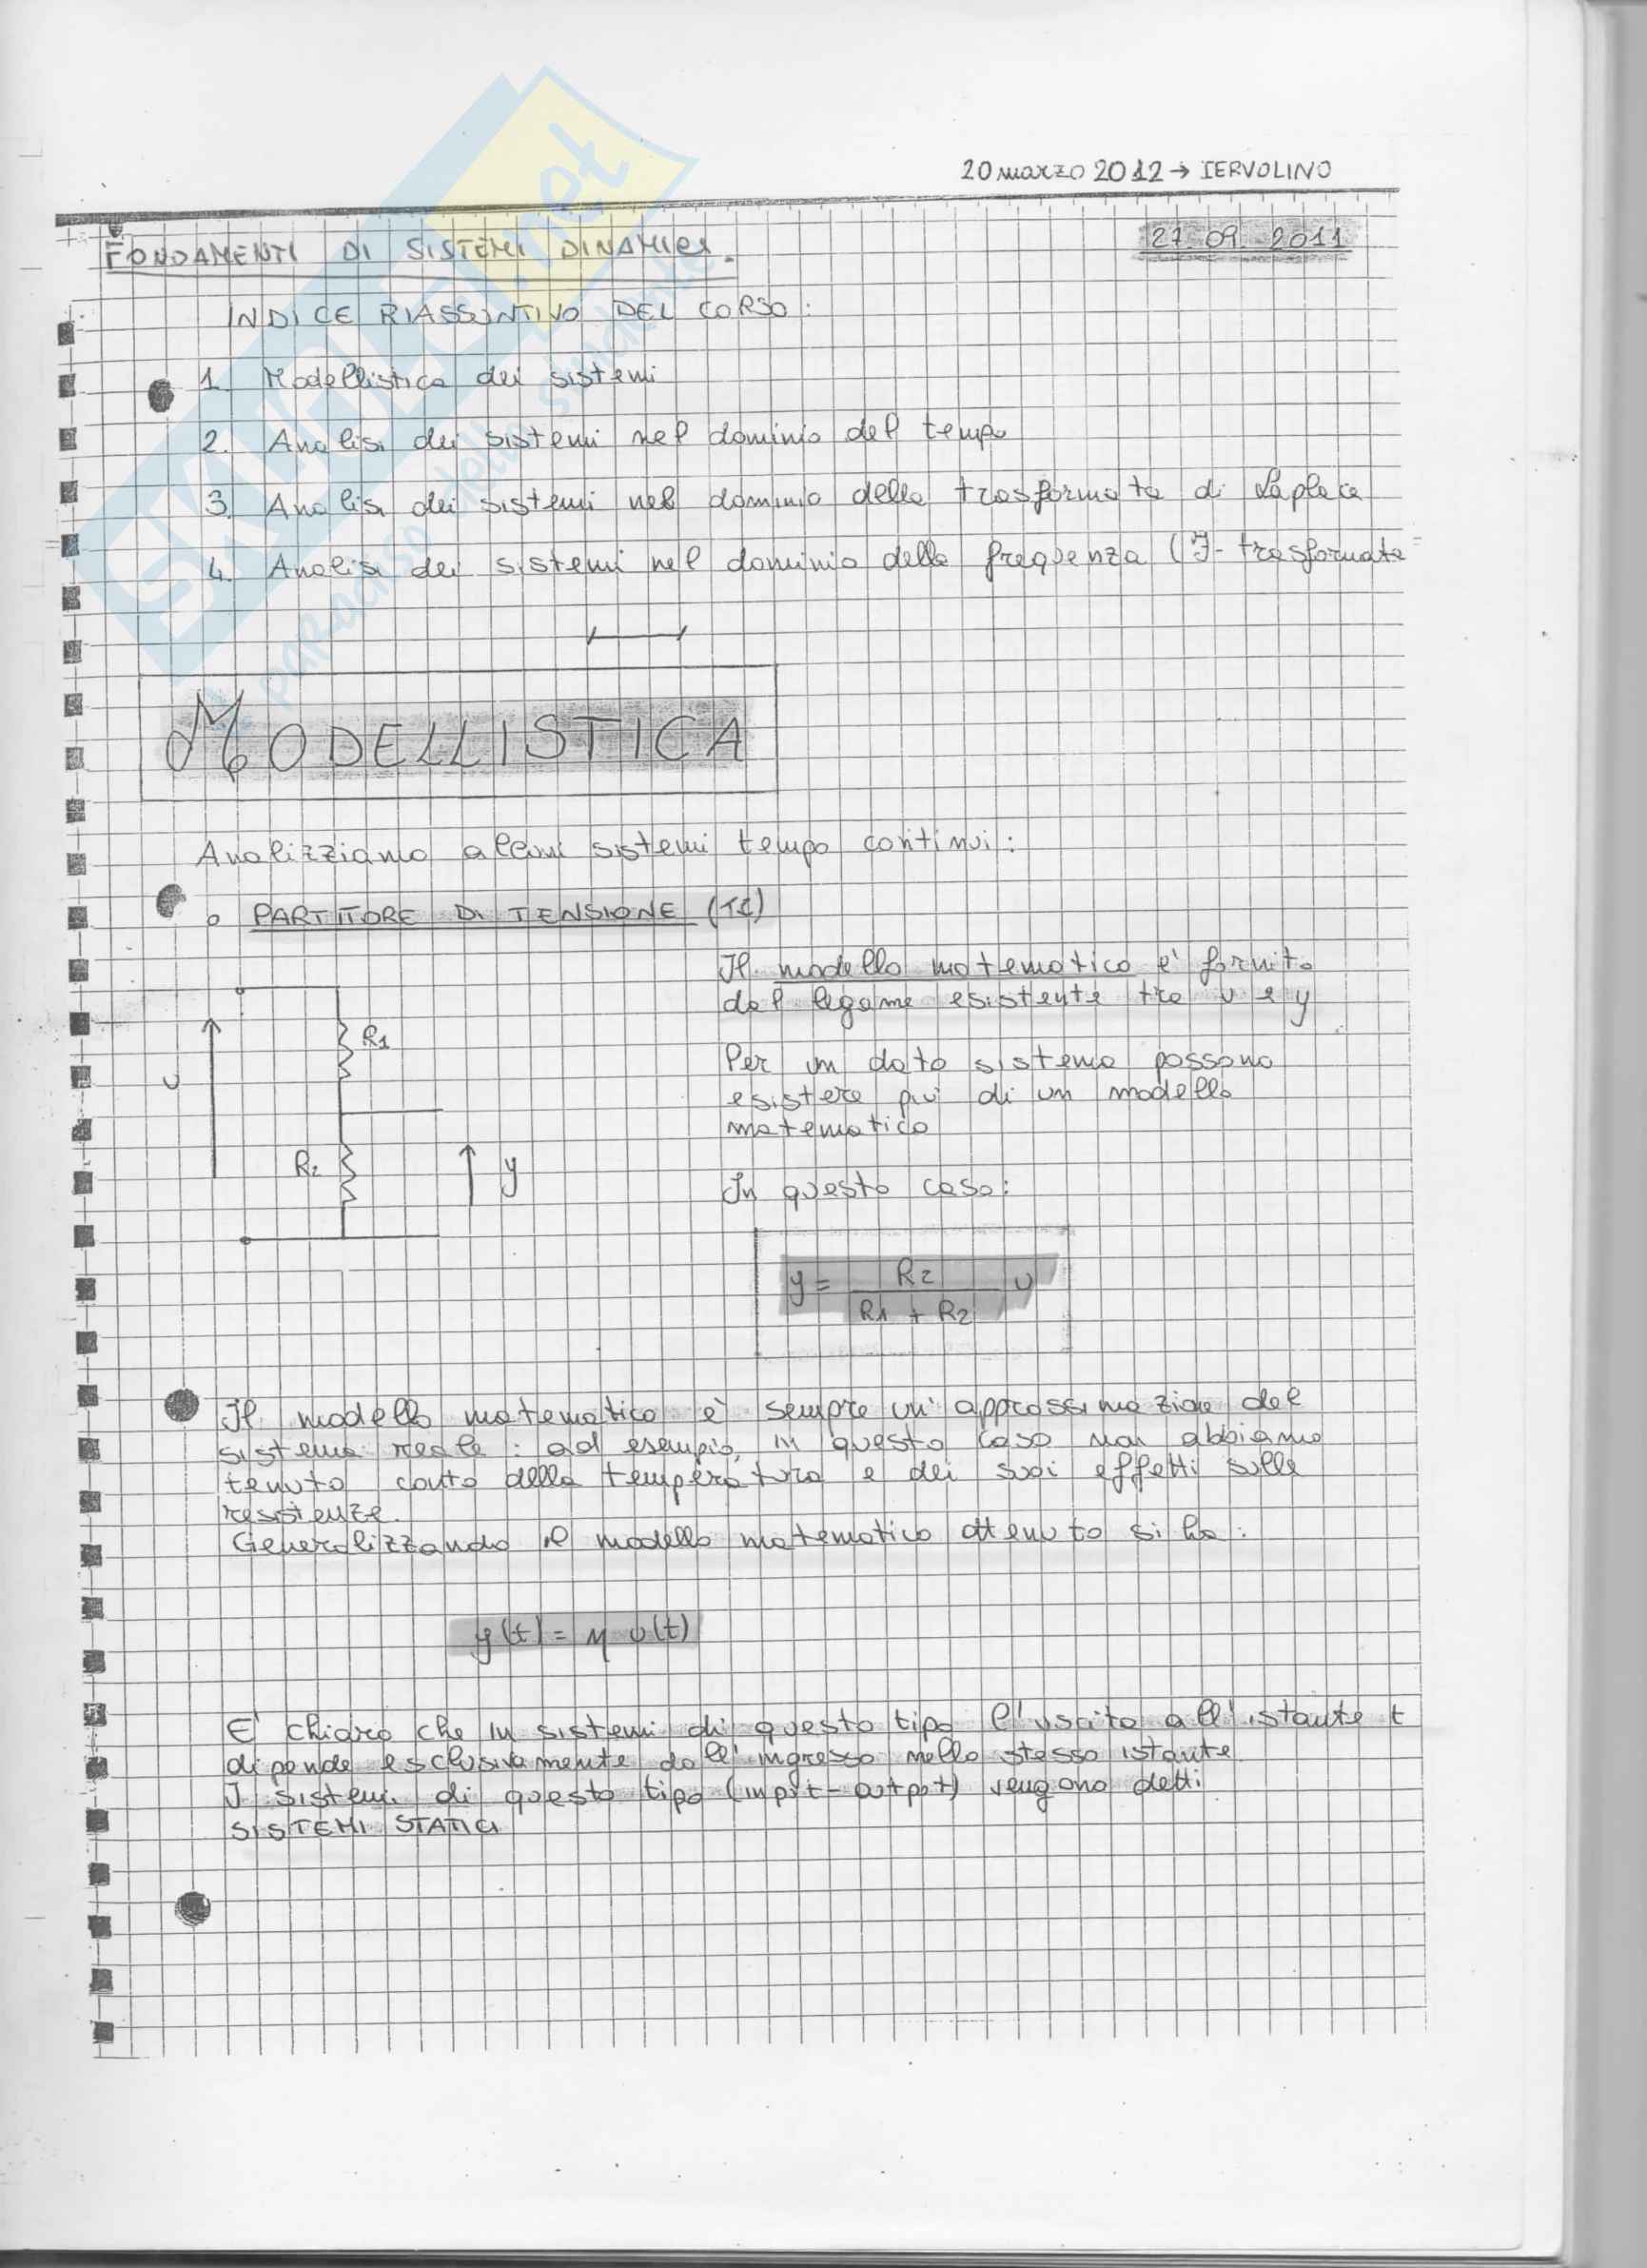 20 marzo 2012 → IERVOLINO
27.09.2011
FONDAMENTI DI SISTEMI DINAMICI.
INDICE RIASSUNTIVO DEL CORSO:
1. Modellistica dei sistemi
2. Analisi dei sistemi nel dominio del tempo
3. Analisi dei sistemi nel dominio della trasformata di Laplace
4. Analisi dei sistemi nel dominio della frequenza (F-trasformata
MODELLISTICA
Analizziamo alcuni sistemi tempo continui:
PARTITORE DI TENSIONE (TC)
Il modello matematico e' fornito
dal legame esistente tra u e y
R1
u
Per un dato sistema possono
esistere piu' di un modello
matematico
R2
y
In questo caso:
y = R2
R1 + R2 u
Il modello matematico è sempre un'approssimazione del
sistema reale: ad esempio, in questo caso non abbiamo
tenuto conto della temperatura e dei suoi effetti sulle
resistenze.
Generalizzando il modello matematico ottenuto si ha:
y(t) = η u(t)
E' chiaro che in sistemi di questo tipo l'uscita all'istante t
dipende esclusivamente dall'ingresso nello stesso istante
I sistemi di questo tipo (input-output) vengono detti
SISTEMI STATICI
SKUOLA.net
paradiso dello studente